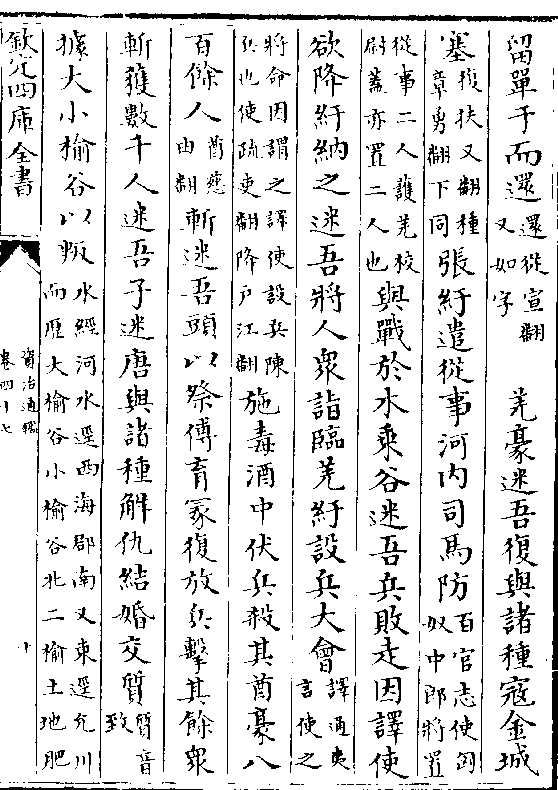 留單于而還還從宣翻又如字　羌豪迷吾復與諸種寇金城
塞復扶又翻種章勇翻下同張紆遣從事河内司馬防百官志使匈奴中郎將置
從事二人護羌校尉蓋亦置二人也與戰於木乘谷迷吾兵敗走因譯使
欲降紆納之迷吾將人衆詣臨羌紆設兵大會譯通夷言使之
將命因謂之譯使設兵陳兵也使疏吏翻降戶江翻施毒酒中伏兵殺其酋豪八
百餘人酋慈由翻斬迷吾頭以祭傅育冢復放兵擊其餘衆
斬獲數千人迷吾子迷唐與諸種解仇結婚交質質音致
據大小榆谷以叛水經河水逕西海郡南又東逕允川而歷大榆谷小榆谷北二榆土地肥
欽定四庫全書
資治通鑑
卷四十七